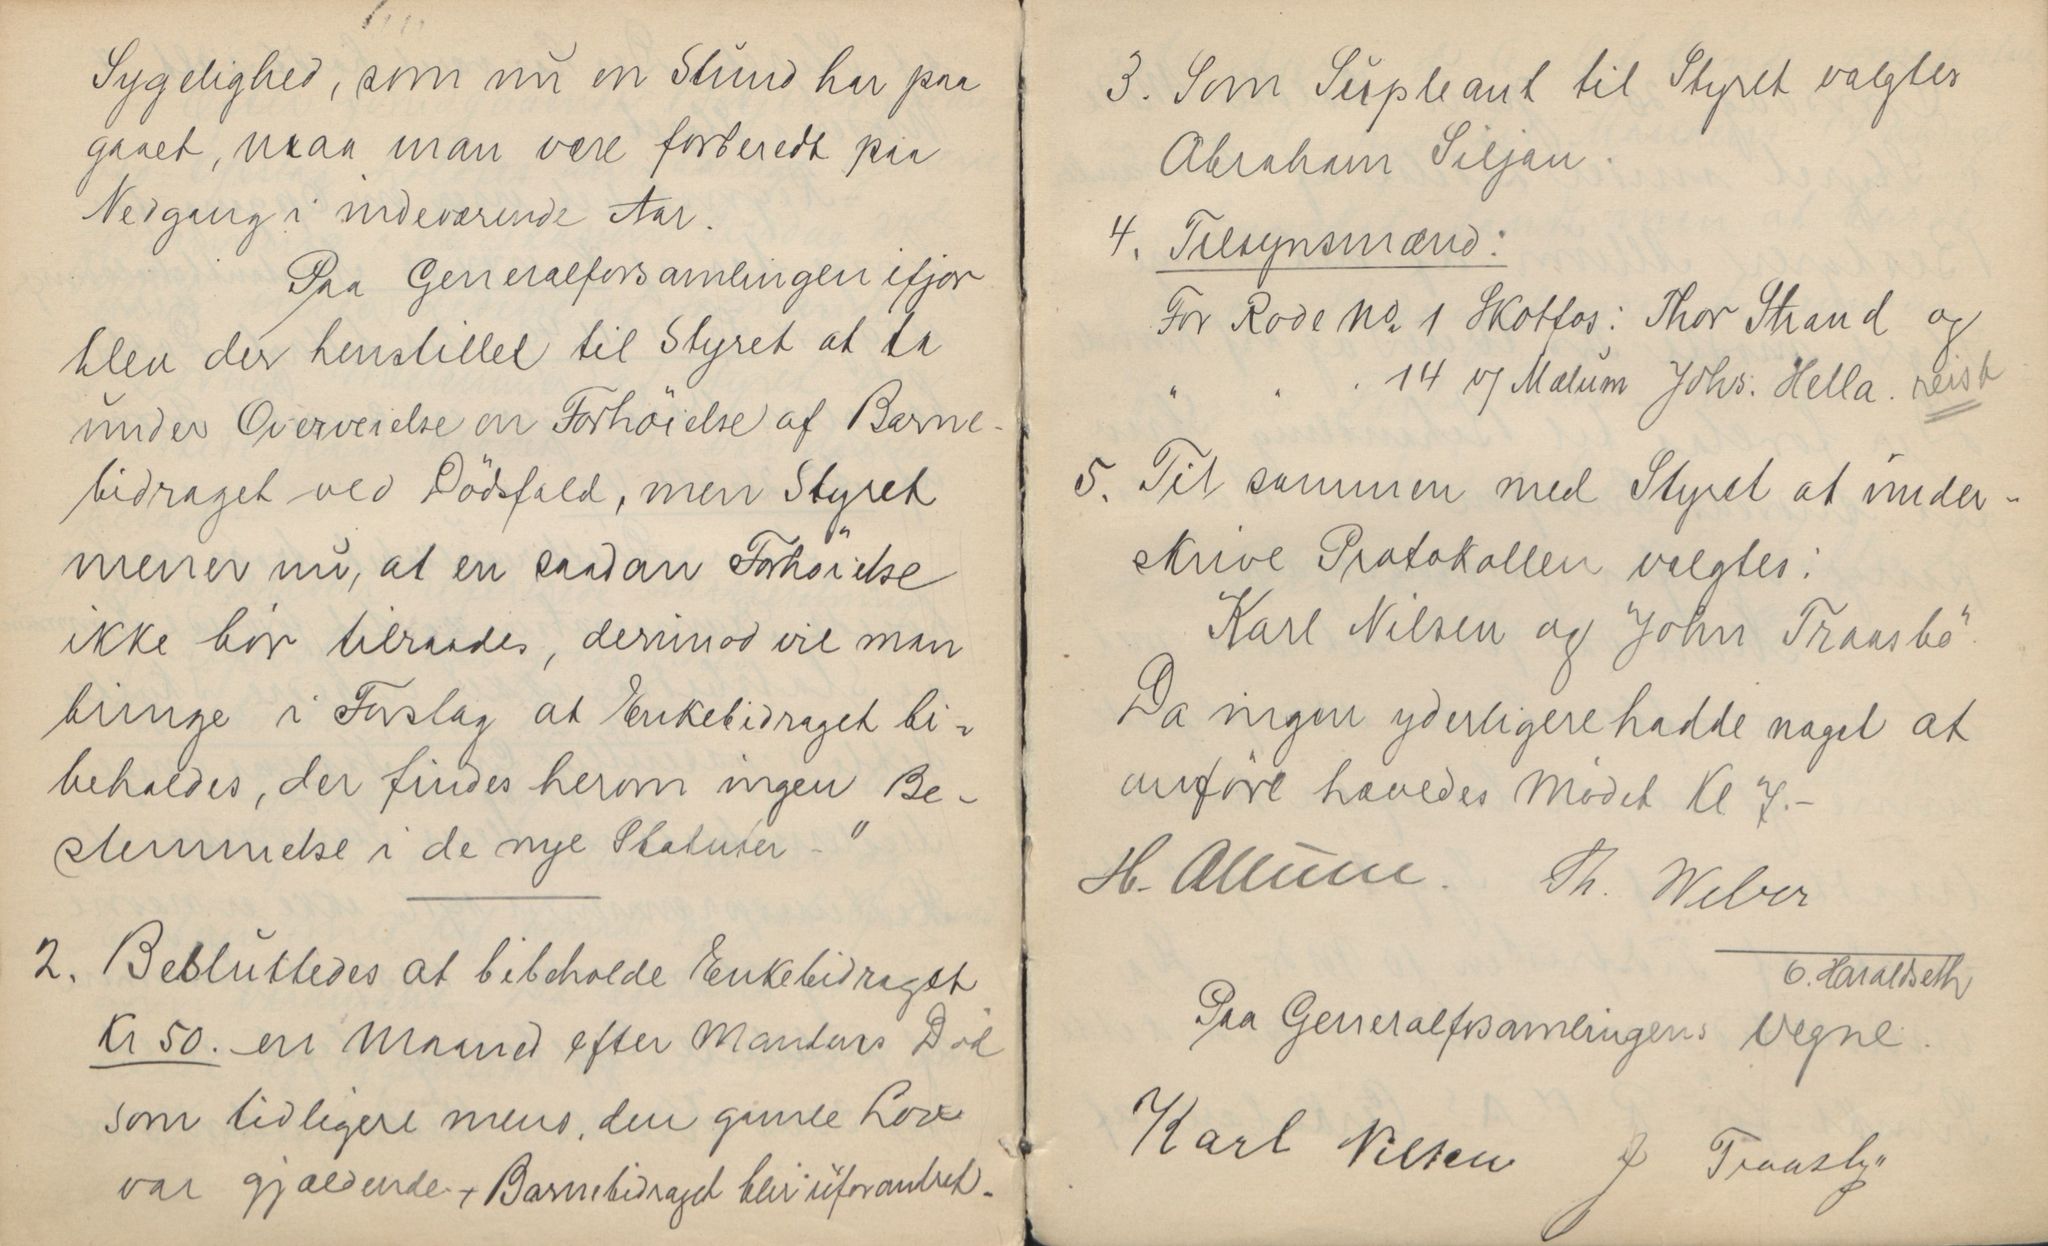 Sygelighed, som nu en Stund har paa
gaaet, maa man være forberedt paa
Nedgang i indeværende Aar.
Paa Generalforsamlingen ifjor
blev der henstillet til Styret at ta
under Overveielse en Forhöielse af Barne-
bidraget ved Dödsfald, men Styret
mener nu, at en saadan Forhöielse
ikke bör tilraades, derimod vil man
bringe i Forslag at Enkebidraget bi-
beholdes, der findes herom ingen Be-
stemmelse i de nye Statuter - "
2. Besluttedes at bibeholde Enkebidraget
Kr 50. en Maaned efter Mandens Död
som tidligere mens den gamle Lov
var gjældende + Barnebidraget blir uforandret.
3. Som Supleant til Styret valgtes
Abraham Siljan.
4. Tilsynsmænd:
For Rode No. 1 Skotfos: Thor Strand og
" " . 14 v/ Mælum Johs. Hella. reist
5. Til sammen med Styret at under-
skrive Protokollen valgtes:
Karl Nilsen og John Traasbö
Da ingen yderligere hadde noget at
anföre hævedes Mödet Kl 7.-
H. Allum. Th. Weber
O. Haraldseth
Paa Generalforsamlingens Vegne.
Karl Nilsen J Traasby